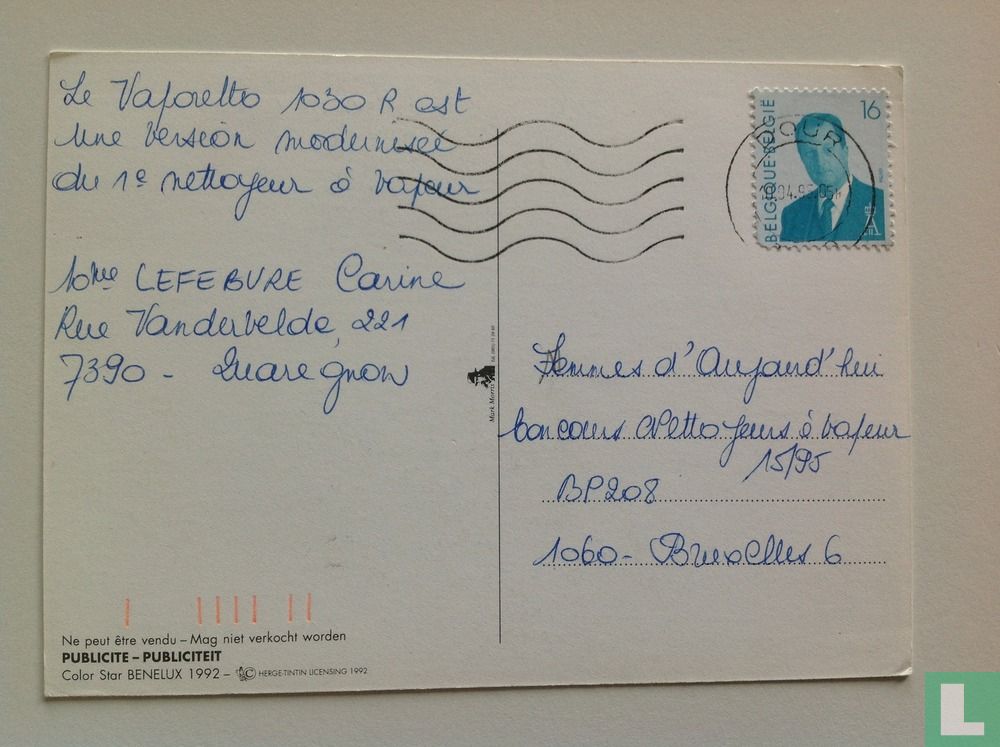 Le Vaporetto 1030 R est
une version modernisée
du 1e nettoyeur à vapeur
Mme LEFEBVRE Carine
Rue Vandervelde, 221
7390 - Quaregnon
BELGIQUE-BELGIË
16
Mark Morris
Femmes d'Aujourd'hui
Concours Nettoyeurs à vapeur
15/95
BP208
1060 - Bruxelles 6
Ne peut être vendu – Mag niet verkocht worden
PUBLICITE – PUBLICITEIT
Color Star BENELUX 1992 – © HERGE-TINTIN LICENSING 1992
L